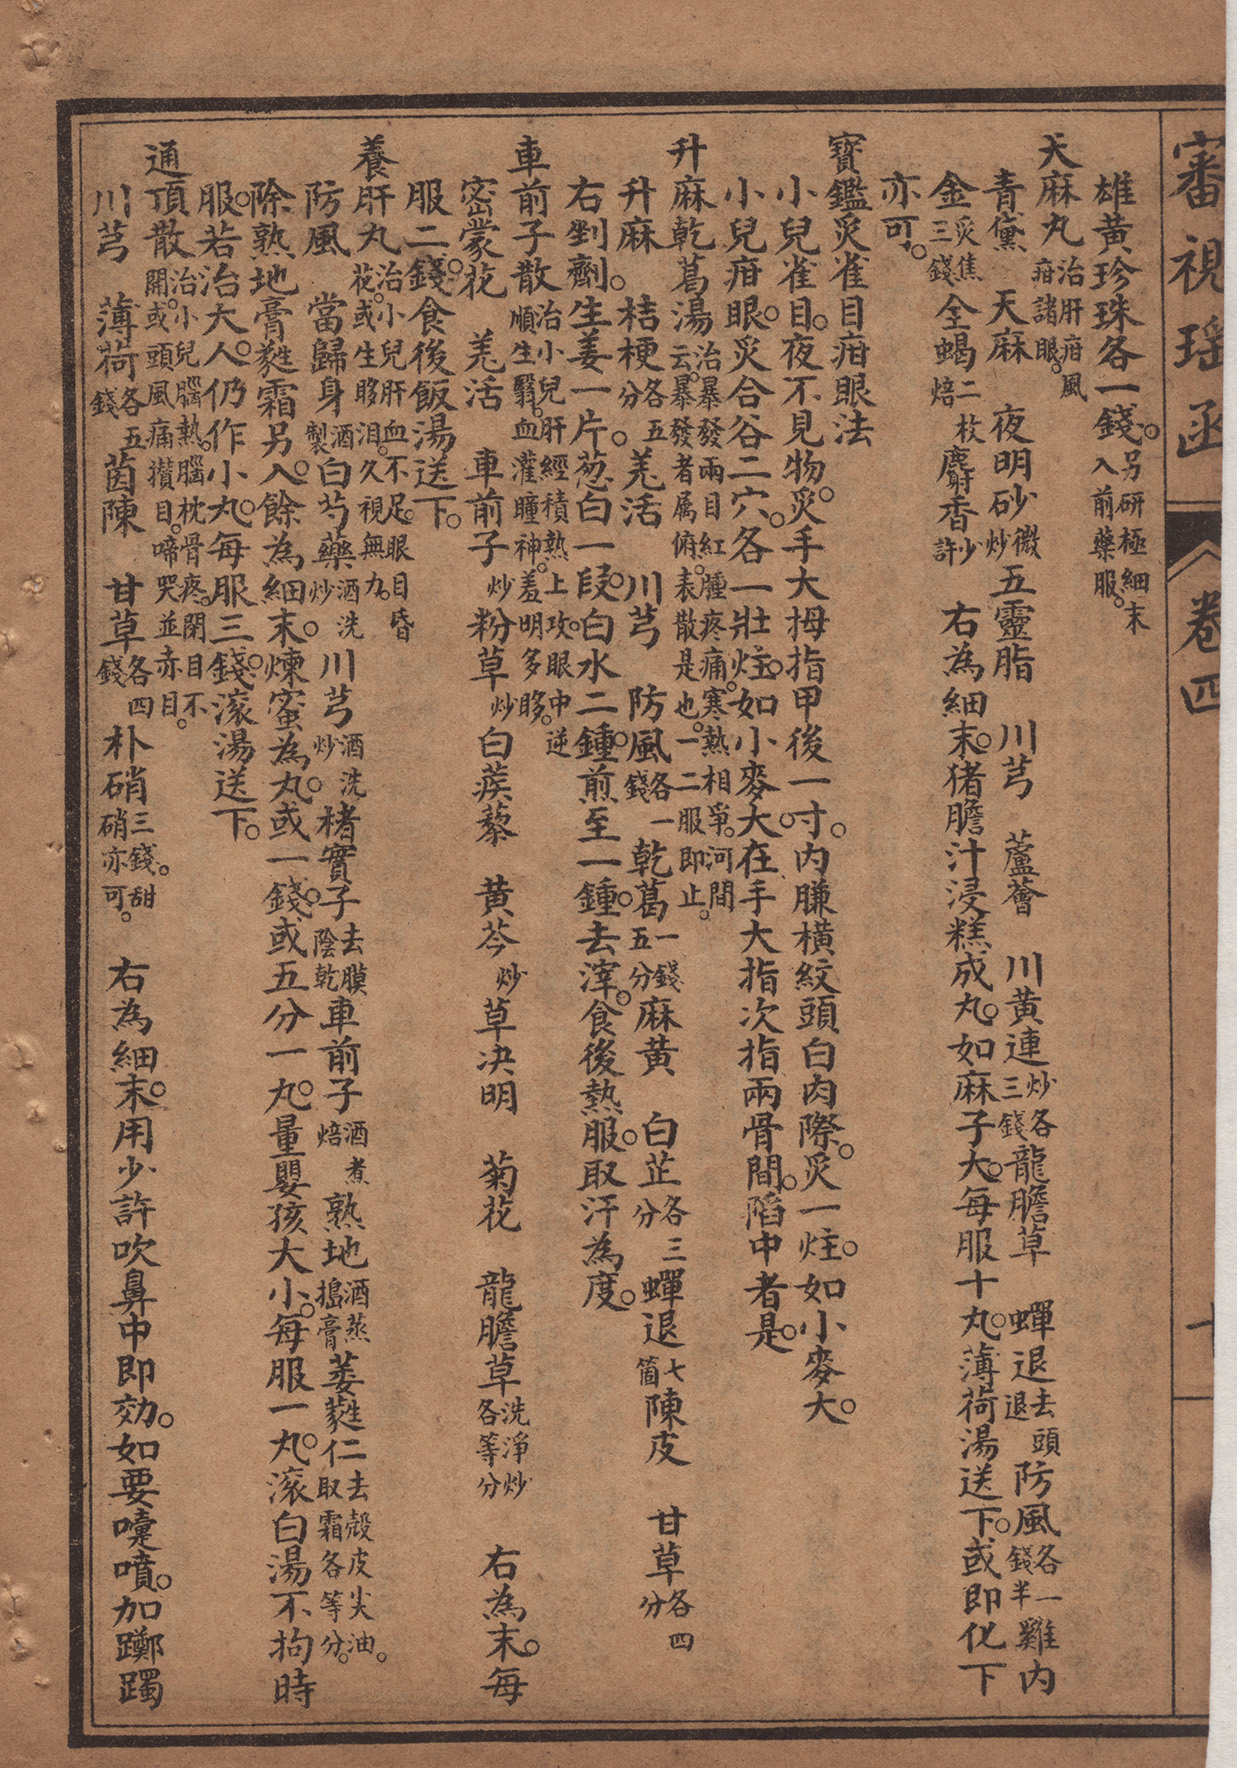 審視瑶函 卷四
雄黄珍珠各一錢。另研極細末入前藥服。
天麻丸治肝疳風疳諸眼。
青黛 天麻 夜明砂微炒五靈脂 川芎 蘆薈 川黄連炒各三錢龍膽草 蟬退去頭退防風各一錢半雞内
金炙焦三錢全蝎二枚焙麝香少許 右為細末。猪膽汁浸糕成丸。如麻子大。每服十丸。薄荷湯送下。或即化下
亦可。
寶鑑炙雀目疳眼法
小兒雀目。夜不見物。炙手大拇指甲後一寸。内臁横紋頭白肉際。炙一炷。如小麥大。
小兒疳眼。炙合谷二穴。各一壯。炷如小麥大。在手大指次指兩骨間。䧟中者是。
升麻乾葛湯治暴發兩目紅腫疼痛。寒熱相爭。河間云。暴發者属俯。表散是也。一二服即止。
升麻 桔梗各五分羗活 川芎 防風各一錢乾葛一錢五分麻黄 白芷各三分 蟬退七箇陳皮 甘草各四分
右剉劑。生姜一片。葱白一段。白水二鍾。煎至一鍾。去滓。食後熱服。取汗為度。
車前子散治小兒肝經積熱。上攻眼中。逆順生翳。血灌瞳神。羞明多眵。
密蒙花 羗活 車前子炒粉草炒白蒺藜 黄芩炒草决明 菊花 龍膽草洗淨炒各等分 右為末。每
服二錢。食後飯湯送下。
養肝丸治小兒肝血不足。眼目昏花。或生眵泪。久視無力。
防風 當歸身酒製白芍藥酒洗炒川芎酒洗炒楮實子去膜陰乾車前子酒煮焙熟地酒蒸搗膏萎蕤仁去殼皮尖油。取霜各等分。
除熟地膏蕤霜另入。餘為細末。煉蜜為丸。或一錢。或五分一丸。量嬰孩大小。每服一丸。滚白湯不拘時
服。若治大人。仍作小丸。每服三錢。滚湯送下。
通頂散治小兒腦熱。腦枕骨疼。閉目不開。或頭風痛攢目。啼哭並赤目。
川芎 薄荷各五錢茵陳 甘草各四錢朴硝三錢。甜硝亦可。 右為細末。用少許吹鼻中即効。如要嚏噴。加躑躅